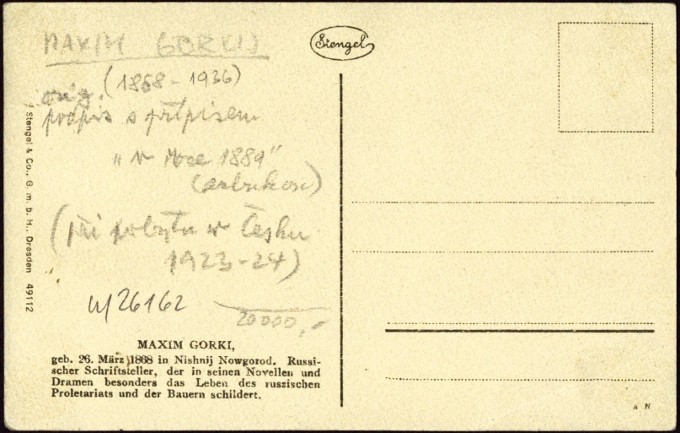 MAXIM GORKIJ
(1868 - 1936)
orig.
podpis s přípisem
"v roce 1889"
(
(při pobytu v Česku
1923-24)
u/26162
20000,-
Stengel
Stengel & Co., G. m. b. H., Dresden 49112
MAXIM GORKI,
geb. 26. März 1868 in Nishnij Nowgorod. Russi-
scher Schriftsteller, der in seinen Novellen und
Dramen besonders das Leben des russischen
Proletariats und der Bauern schildert.
A N